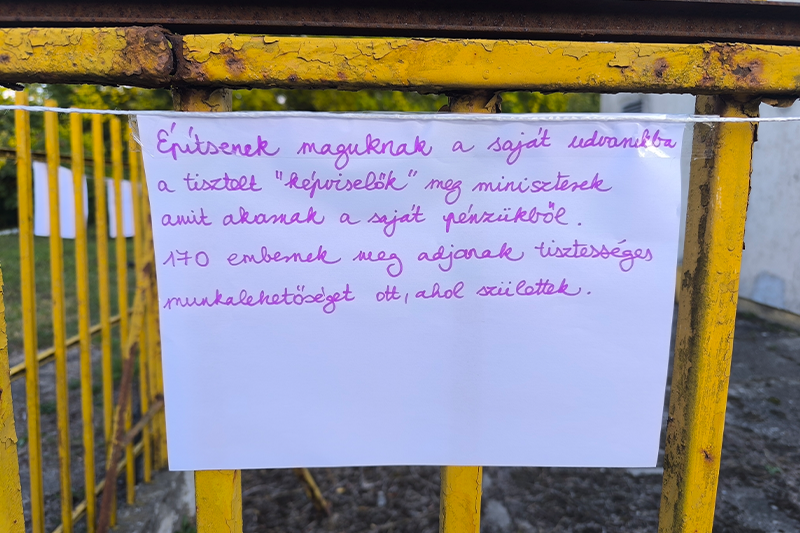 Építsenek maguknak a saját udvarukba
a tisztelt "képviselők" meg miniszterek
amit akarnak a saját pénzükből.
170 embernek meg adjanak tisztességes
munkalehetőséget ott, ahol születtek.